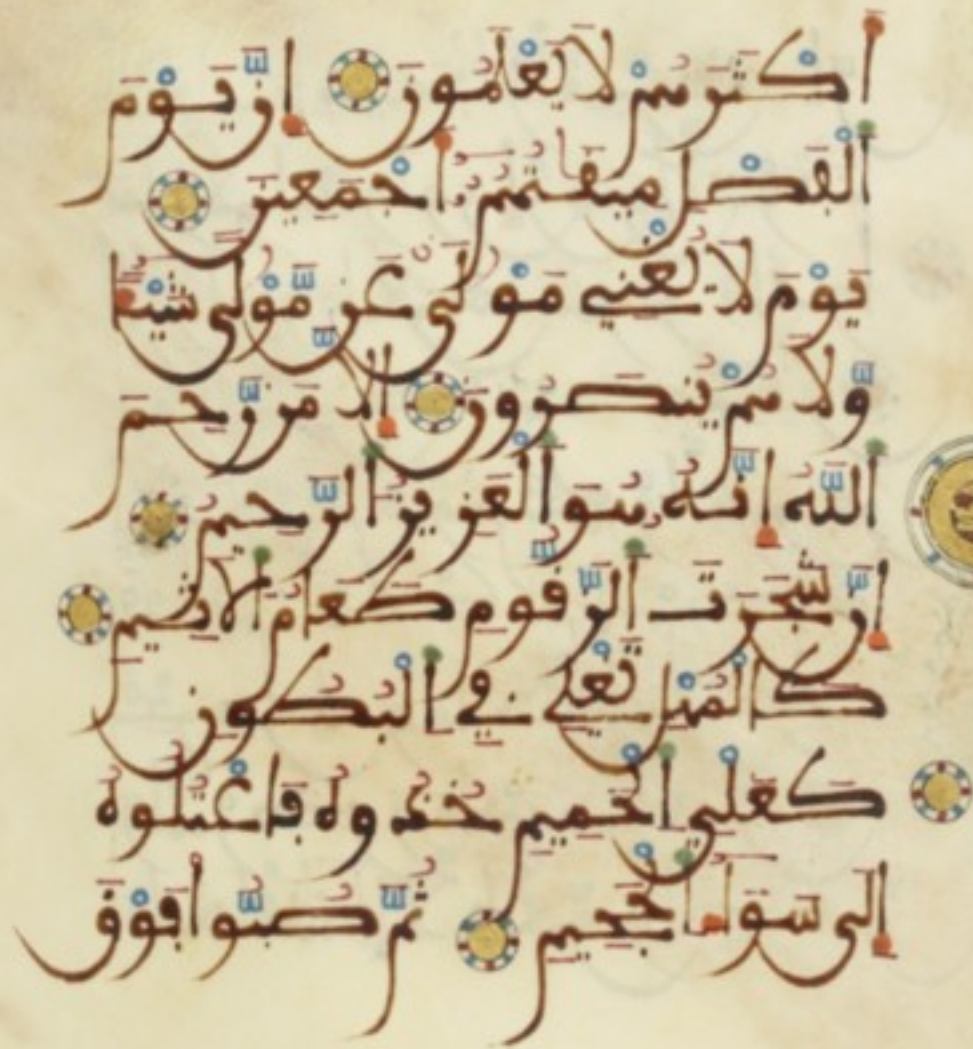 أكثرهم لا يعلمون إن يوم
الفصل ميقتهم أجمعين
يوم لا يغني مولى عن مولى شيئا
ولا هم ينصرون إلا من رحم
الله إنه هو العزيز الرحيم
إن شجرت الزقوم طعام الأثيم
كالمهل تغلي في البطون
كغلي الحميم خذوه فاعتلوه
إلى سواء الجحيم ثم صبوا فوق